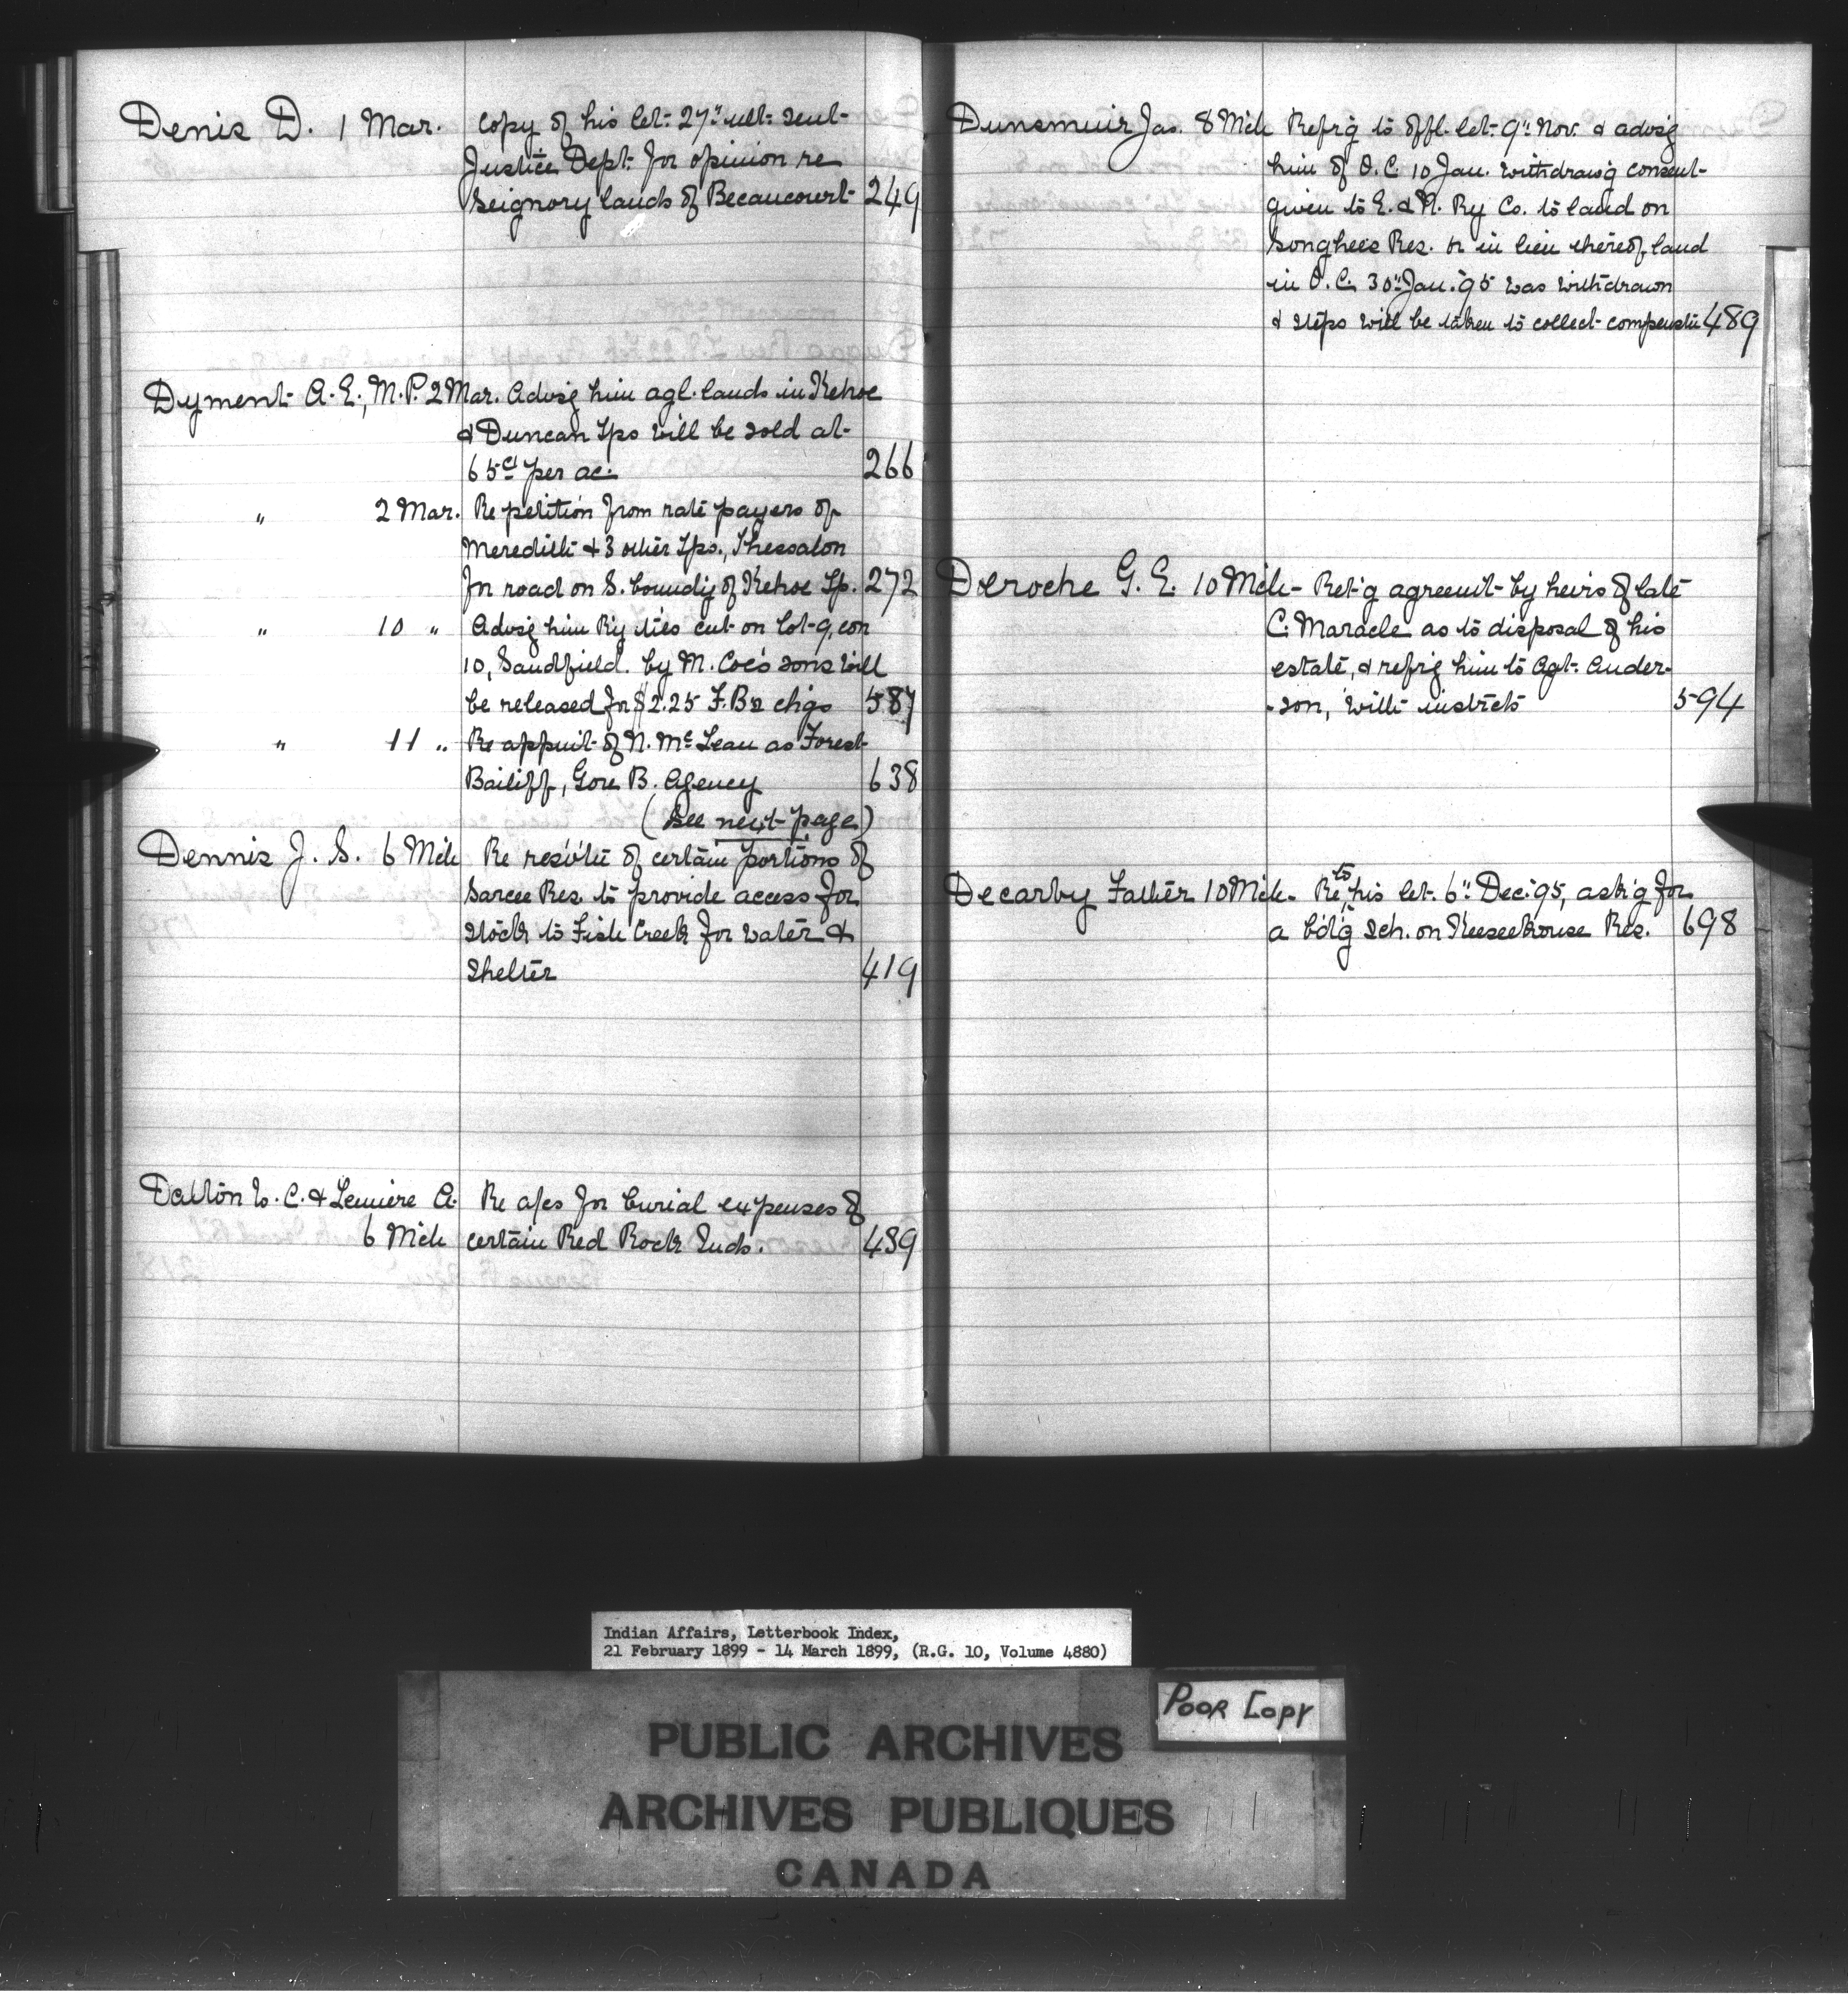 Denis D. 1 Mar. Copy of his let. 27" ult. sent
Justice Dept. for opinion re
Seignory lands of Becancourt 249
Dyment A. E., M.P. 2 Mar. Advsg him agl. lands in Kehoe
& Duncan Tps will be sold at
65cts per ac. 266
" 2 Mar. Re petition from rate payers of
Meredith & 3 other Tps., Thessalon
for road on S. boundy of Kehoe Tp. 272
" 10 " Advsg him Ry ties cut on lot 9, con
10, Sandfield by M. Coe's sons will
be released for $2.25 F.B's chgs 587
" 11 " Re appmt of N. McLean as Forest
Bailiff, Gore B. Agency 638
(See next page)
Dennis J. S. 6 Mch Re of certain portions of
Sarcee Res. to provide access for
stock to Fish Creek for water &
shelter 419
Dalton W. C. & Lemiere A. Re a/cs for burial expenses of
6 Mch certain Red Rock Inds. 439
Dunsmuir Jas. 8 Mch Refrg to offl. let. 9" Nov. & advsg
him of O.C. 10 Jan. withdrawg consent
given to E. & N. Ry Co. to land on
Songhees Res. & in lieu thereof land
in O.C. 30" Jan. 95 was withdrawn
& steps will be taken to collect compenstn 489
Deroche G. E. 10 Mch - Ret'g agreemt by heirs of late
C. Maracle as to disposal of his
estate, & refrg him to Agt. Ander-
-son, with instrcts 594
Decarby Father 10 Mch - Re to his let. 6" Dec. 95, ask'g for
a bd'g Sch. on Keeseekouse Res. 698
Indian Affairs, Letterbook Index,
21 February 1899 - 14 March 1899, (R.G. 10, Volume 4880)
POOR COPY
PUBLIC ARCHIVES
ARCHIVES PUBLIQUES
CANADA